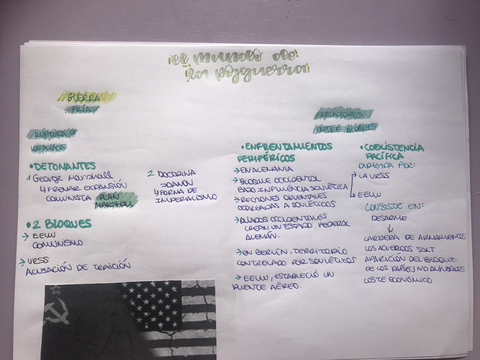 ¡El mundo de
la posguerra!
GUERRA
FRÍA
RUPTURA
• DETONANTES
1 George Marshall
↳ FRENAR EXPANSIÓN
COMUNISTA
PLAN
MARSHALL
2 DOCTRINA
↳ FORMA DE
IMPERIALISMO
• 2 BLOQUES
→ EEUU
COMUNISMO
→ URSS
ACUSACIÓN DE TRAICIÓN
RELACIONES
ENTRE BLOQUES
• ENFRENTAMIENTOS
PERIFÉRICOS
→ EN ALEMANIA
→ BLOQUE OCCIDENTAL
BAJO INFLUENCIA SOVIÉTICA
→ REGIONES ORIENTALES
OTORGADAS A SOVIÉTICOS
→ ALIADOS OCCIDENTALES
CREAN UN ESTADO FEDERAL
ALEMÁN.
→ EN BERLÍN, TERRITORIO
CONTROLADO POR SOVIÉTICOS
→ EEUU, ESTABLECIÓ UN
PUENTE AÉREO.
• COEXISTENCIA
PACÍFICA
DIRIGIDA POR:
LA URSS
EEUU
CONSISTE EN:
DESARME
↓
CARRERA DE ARMAMENTOS
LOS ACUERDOS SALT
APARICIÓN DEL BLOQUE
DE LOS PAÍSES NO ALINEADOS
COSTE ECONÓMICO